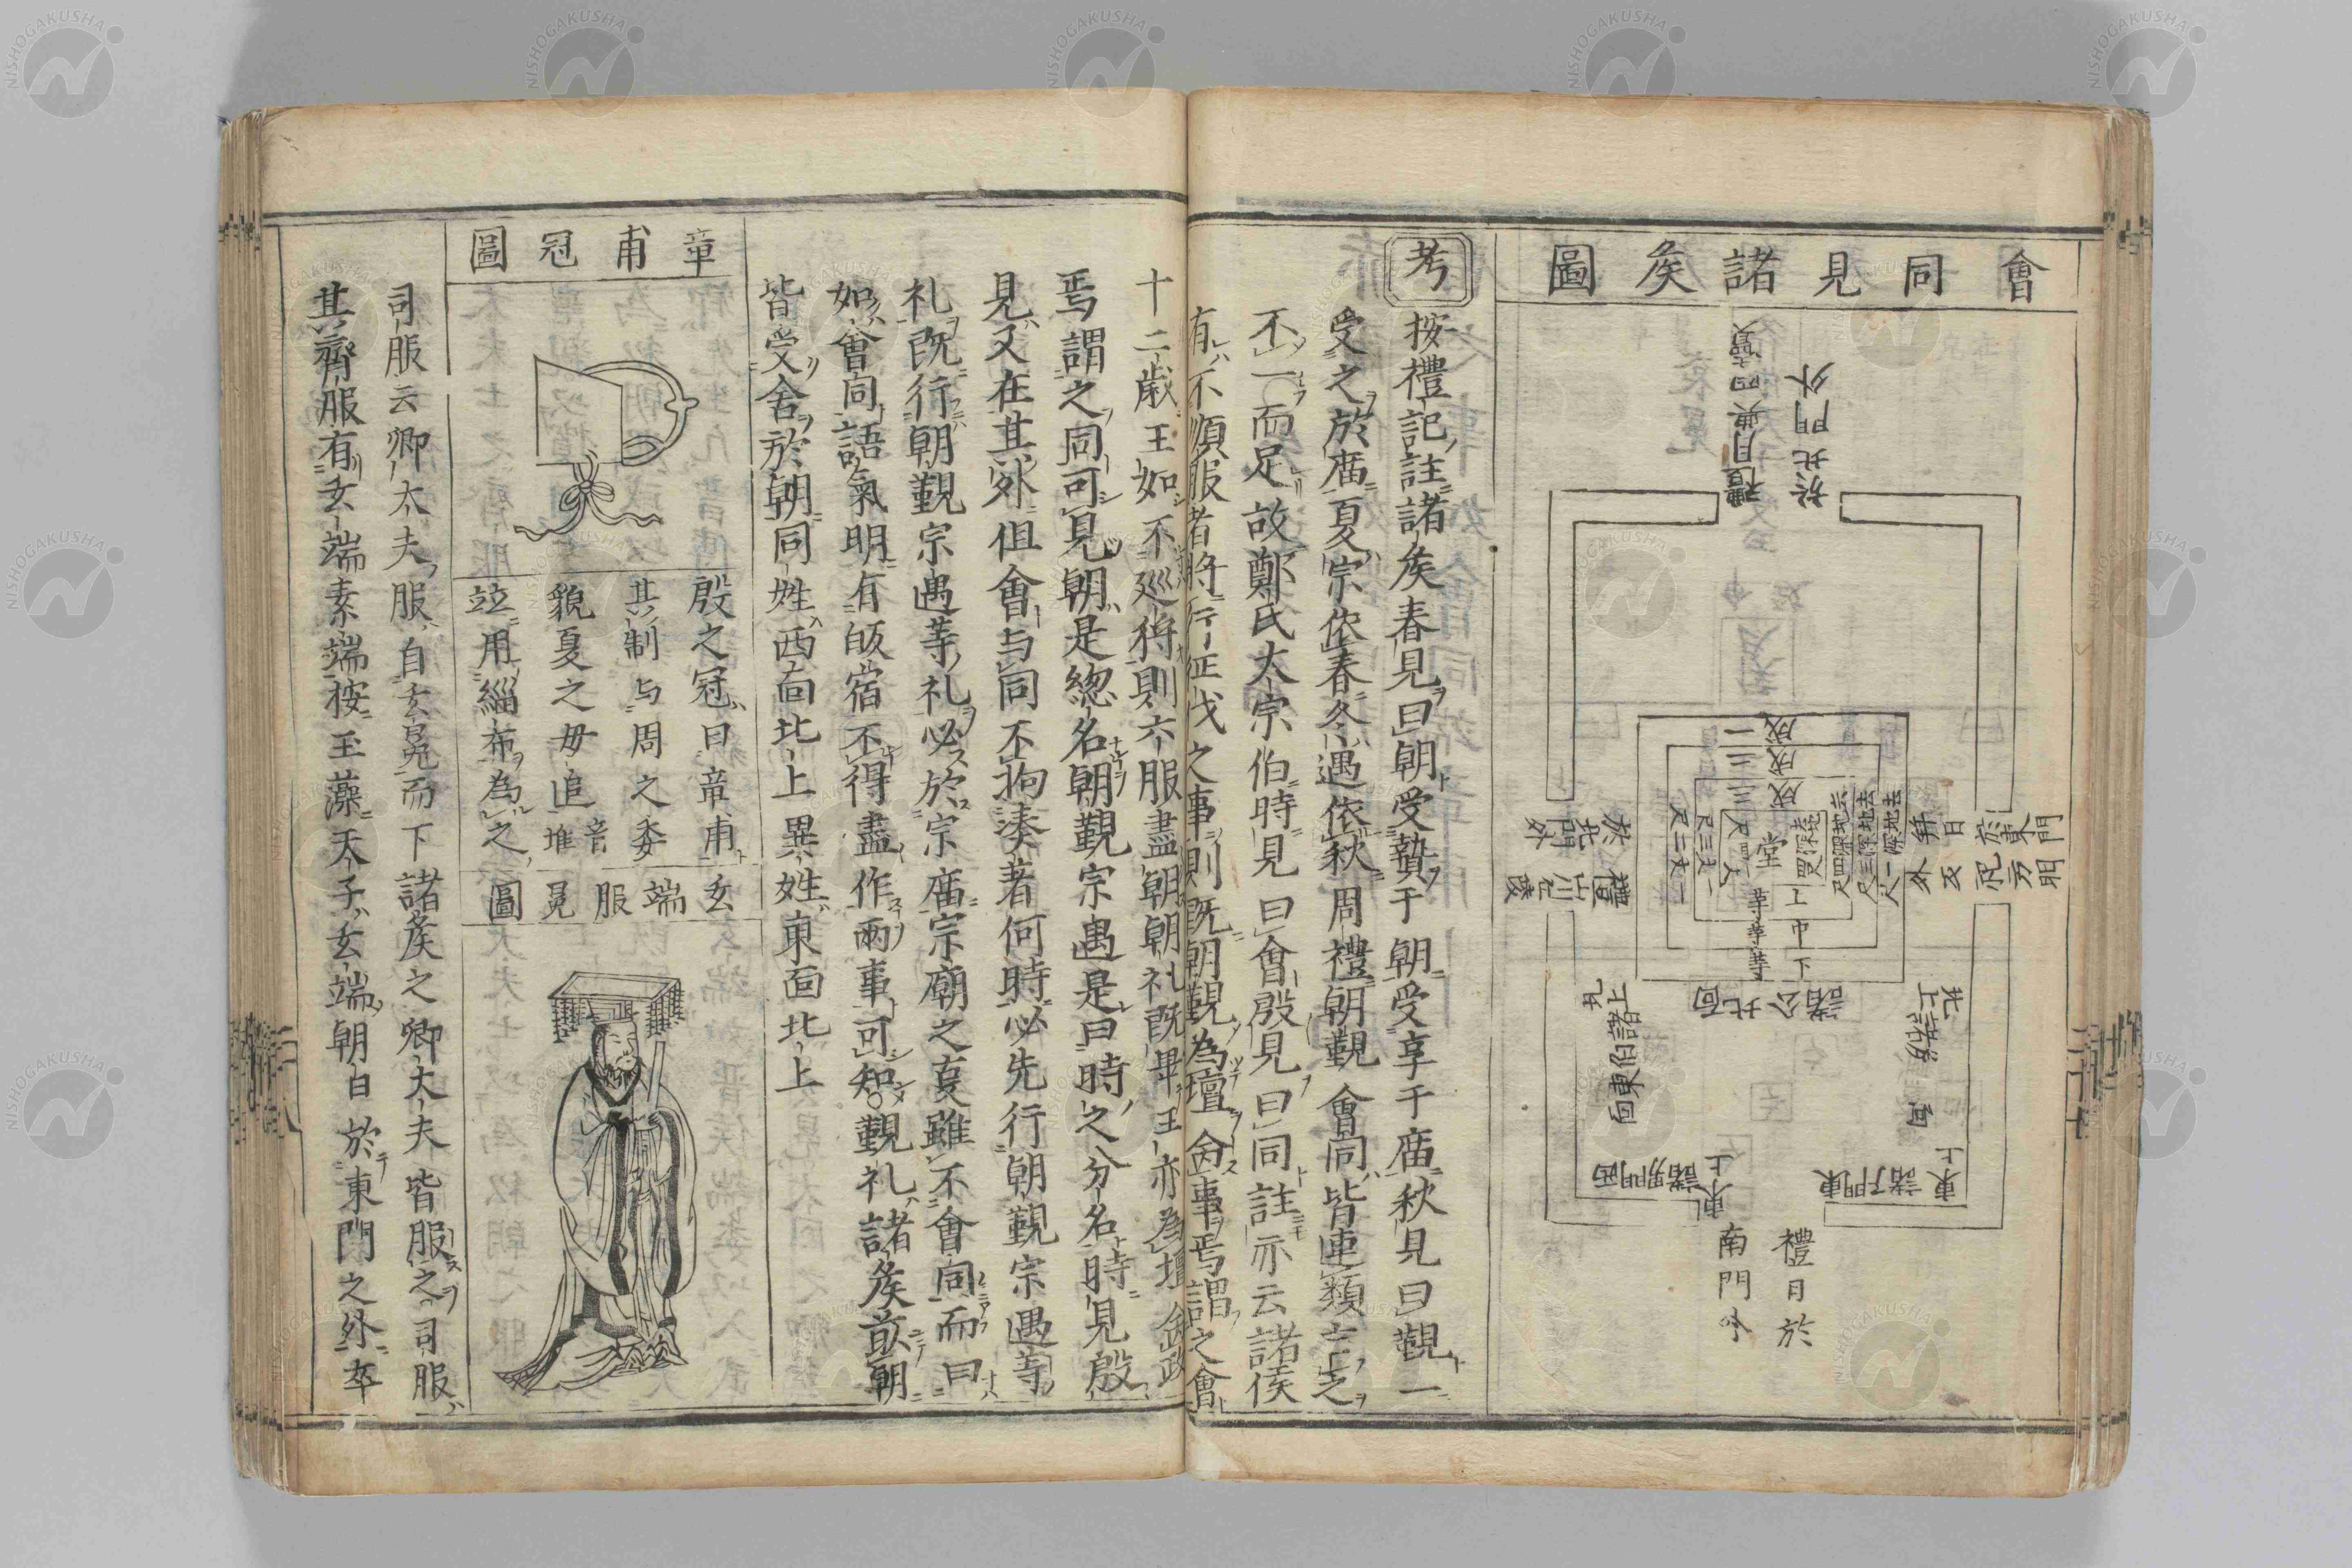 會同見諸矦圖
禮月與四瀆
於北門外
禮日於東門外
禮山川丘陵
於西門外
一成
二成
三成
堂
上等
中等
下等
諸公北面
禮月於
南門外
考
按禮記註諸矦春見曰朝受贄于朝受享于庿秋見曰覲一
受之於庿夏宗依春冬遇依秋周禮朝覲會同皆連類言之
不一而足故鄭氏大宗伯時見曰會殷見曰同註亦云諸侯
有不順服者將行征伐之事則既朝覲為壇合事焉謂之會
十二歲王如不廵狩則六服盡朝朝礼既畢王亦為壇合政
焉謂之同可見朝是總名朝覲宗遇是曰時之分名時見殷
見又在其外但會与同不拘湊著何時必先行朝覲宗遇等
礼既行朝覲宗遇等礼必於宗庿宗廟之事雖不會同而曰
如會同語氣明有皈宿不得盡作兩事可知覲礼諸矦前朝
皆受舍於朝同姓西面北上異姓東面北上
章甫冠圖
殷之冠曰章甫
其制与周之委
貌夏之毋追音堆
竝用緇布為之
玄端服冕圖
司服云卿大夫服自玄冕而下諸矦之卿大夫皆服之司服
其齊服有玄端素端按玉藻天子玄端朝日於東門之外卒